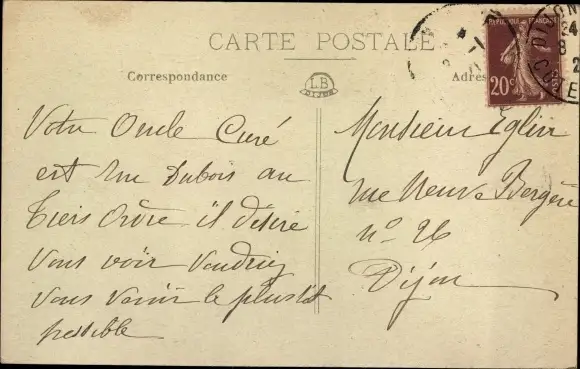 CARTE POSTALE
Correspondance
LB
DIJON
REPUBLIQUE FRANÇAISE
20c
DIJON
24
8
2
COTE
Votre Oncle Curé
est Rue Dubois au
Tiers Ordre il désire
vous voir Voudriez
vous venir le plus tôt
possible
Monsieur
rue Neuve Bergère
n° 26
Dijon